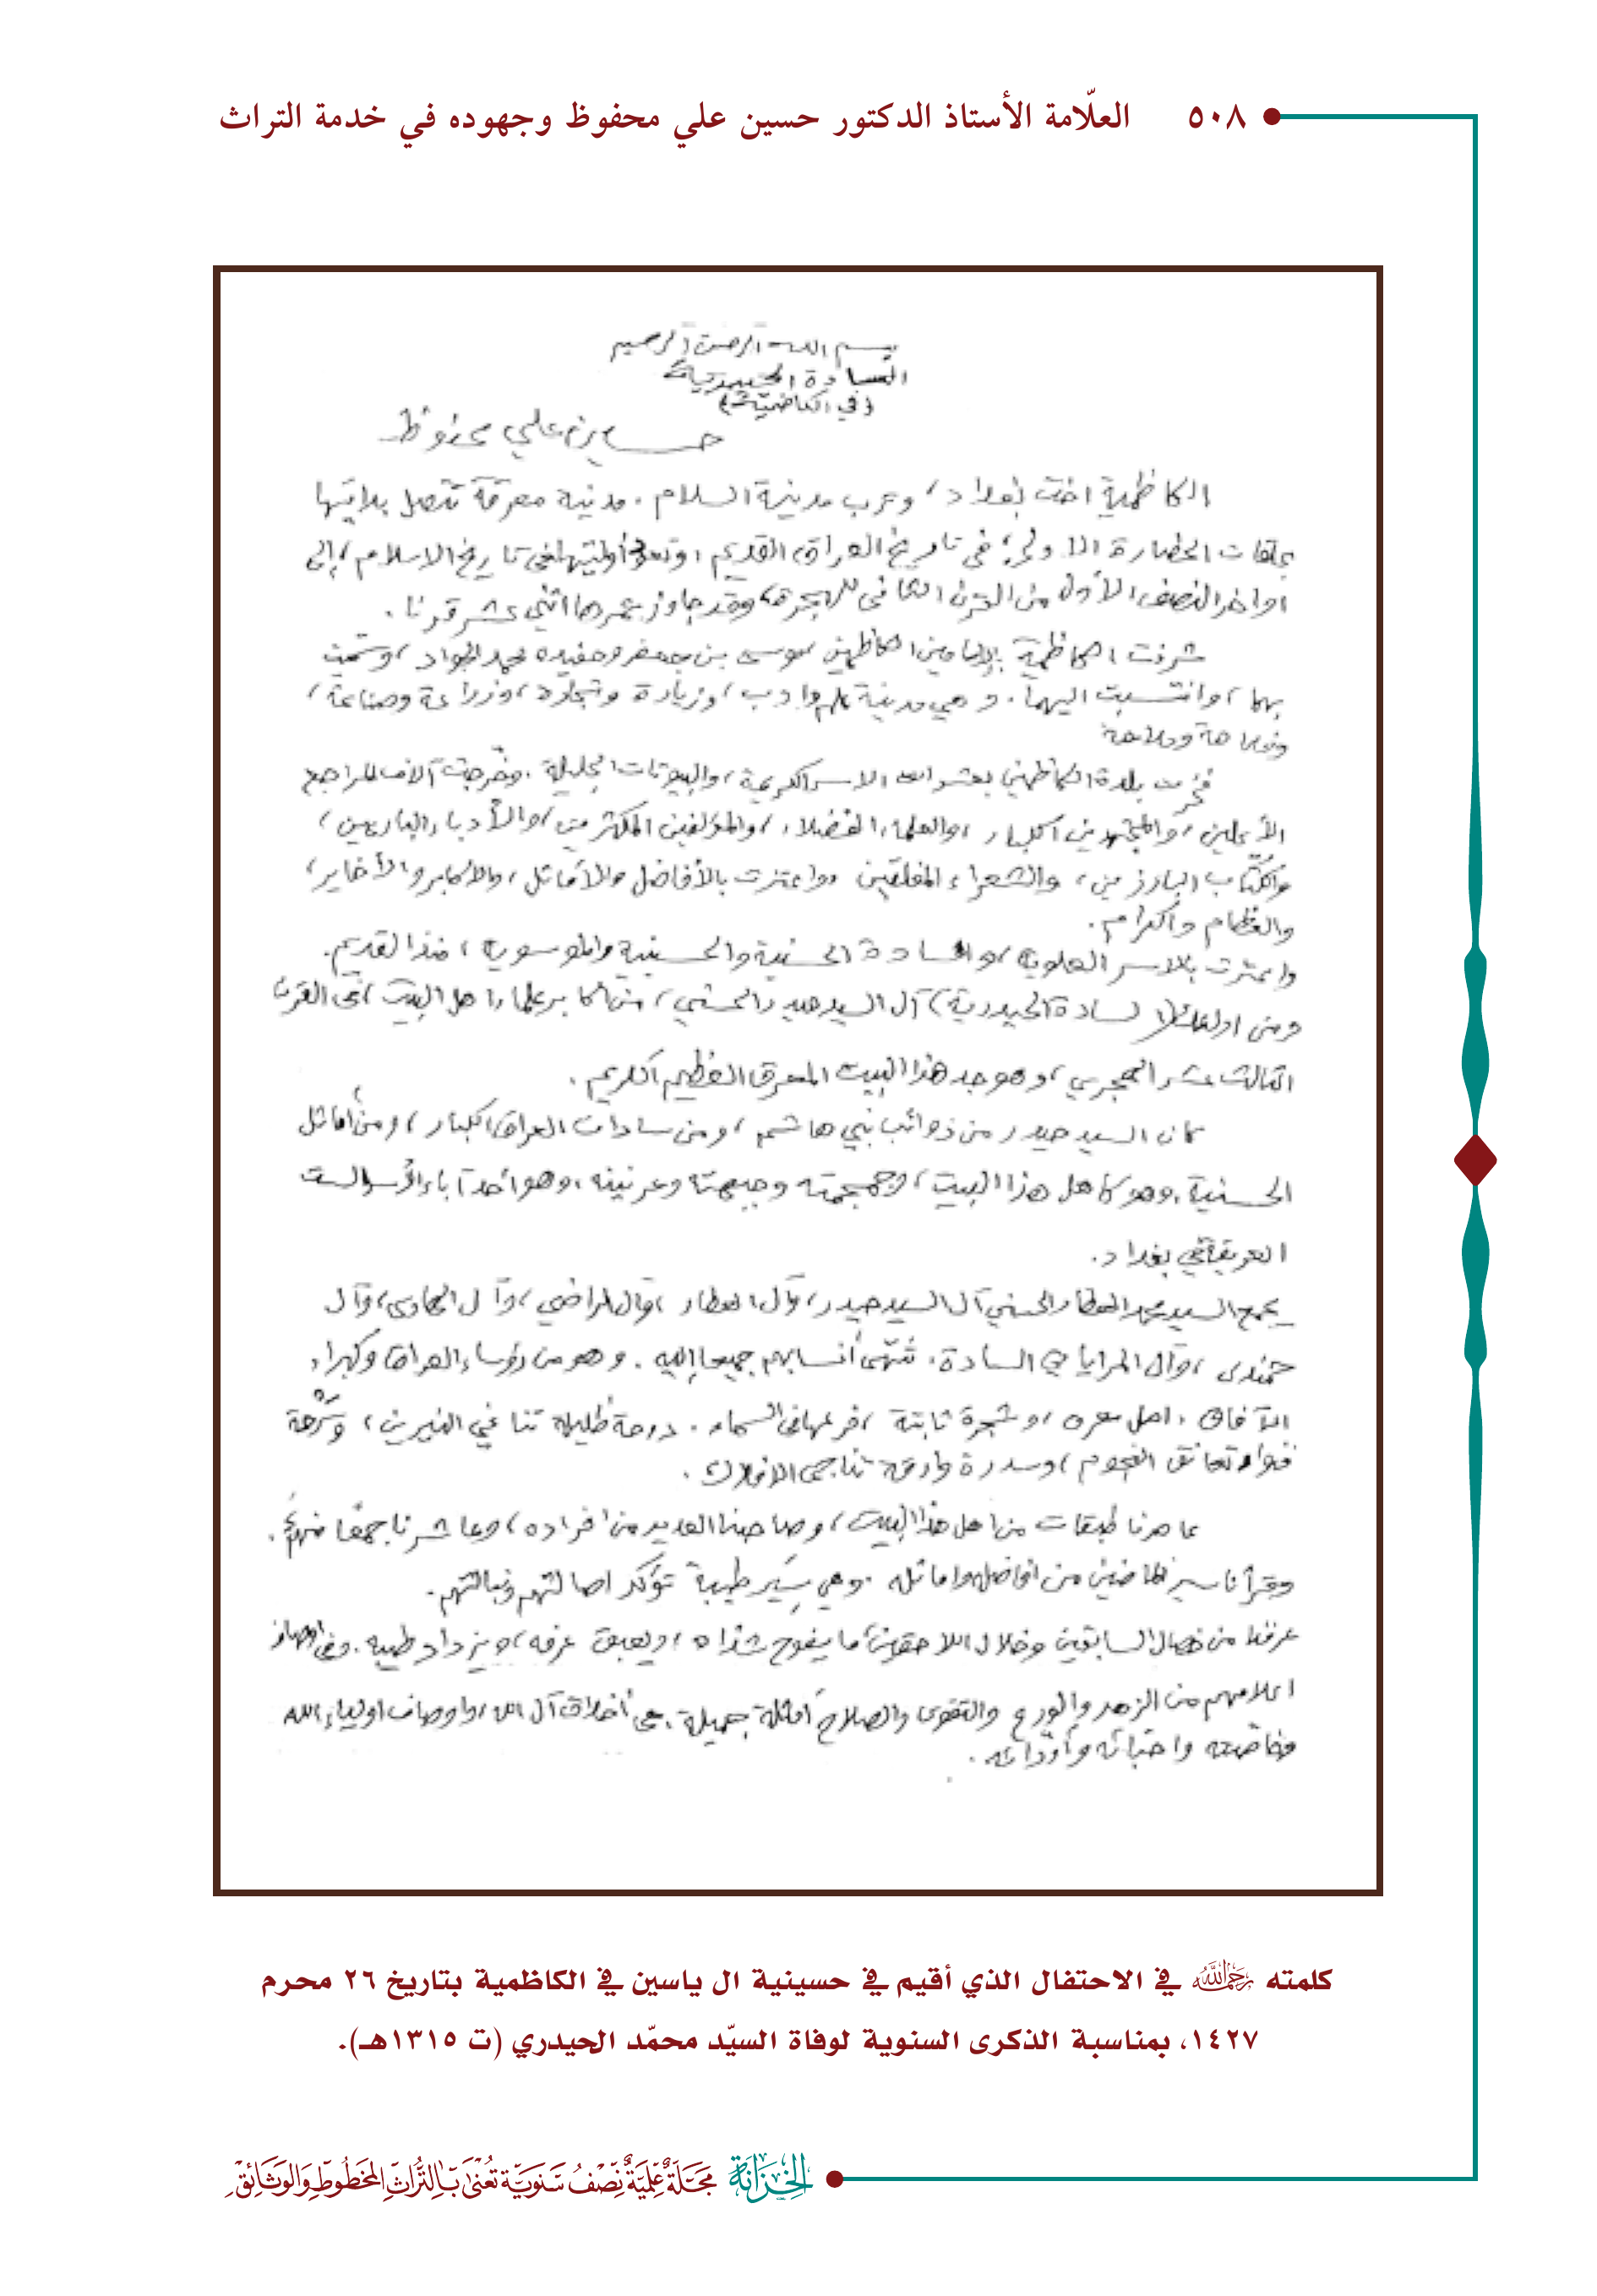 ٥٠٨ العلّامة الأستاذ الدكتور حسين علي محفوظ وجهوده في خدمة التراث
بسم الله الرحمن الرحيم
السادة الحيدرية
(في الكاظمية)
حسين علي محفوظ
الكاظمية اخت بغداد، وعرب مدينة السلام. مدينة معرقة تتصل بدايتها
بحلقات الحضارة الاولى، في تاريخ العراق القديم، وتعود أوليتها في تاريخ الاسلام، إلى
اواخر النصف الأول من القرن الثاني للهجرة، وقد جاوز عمرها اثني عشر قرنا.
شرفت الكاظمية بالإمامين الكاظمين موسى بن جعفر وحفيده محمد الجواد، وسميت
بهما، وانتسبت اليهما. وهي مدينة علم وادب، وزيارة وتجارة، وزراعة وصناعة،
وفلاحة وملاحة
فخرت بلدة الكاظمين بعشرات الاسر الكريمة، والبيوتات الجليلة. وخرجت آلاف المراجع
الأعلين، والمجتهدين الكبار، والعلماء الفضلاء، والمؤلفين المكثرين، والأدباء البارعين،
والكتّاب البارزين، والشعراء المفلقين واعتزت بالأفاضل والأماثل، والاكابر والأخاير،
والعظام والكرام.
واعتزت بالاسر العلوية، والسادة الحسنية والحسينية والموسوية، منذ القديم.
ومن اولئك (السادة الحيدرية) آل السيد حيدر الحسني، من اكابر علماء اهل البيت، في القرن
الثالث عشر الهجري، وهو جد هذا البيت المعرق العظيم الكريم.
كان السيد حيدر من ذوائب بني هاشم، ومن سادات العراق الكبار، ومن أماثل
الحسنية، وهو كاهل هذا البيت، وجمجمته وجبهته وعرنينه، وهو أحد آباء الأسر الست
العريقة في بغداد.
يجمع السيد محمد العطار الحسني آل السيد حيدر، وآل العطار، وآل الراضي، وآل الهادي، وآل
حمندي، وآل المرايا في السادة. تنتهي أنسابهم جميعا إليه. وهو من رؤساء العراق وكبراء
الآفاق. اصل معرق، وشجرة ثابتة، فرعها في السماء. دوحة ظليلة تناغي النيرين، وسرحة
فنواء تعانق النجوم، وسدرة وارفة تناجي الافلاك.
عاصرنا طبقات من اهل هذا البيت، وصاحبنا العديد من افراده، وعاشرنا جمعًا منهم.
وقرأنا سير الماضين من افاضله واماثله. وهي سِيَر طيبة تؤكد اصالتهم ونبالتهم.
عرفنا من خصال السابقين وخلال اللاحقين ما يفوح شذاه، ويعبق عرفه، ويزداد طيبه. وفي
اعلامهم من الزهد والورع والتقوى والصلاح أمثلة جميلة. هي أخلاق آل الله، واوصاف اولياء الله
وخاصته واحبائه وأودّائه.
كلمته رحمه الله في الاحتفال الذي أقيم في حسينية ال ياسين في الكاظمية بتاريخ ٢٦ محرم
١٤٢٧، بمناسبة الذكرى السنوية لوفاة السيّد محمّد الحيدري (ت ١٣١٥هـ).
الخِزَانَة مَجَلَّةٌ عِلْمِيَّةٌ نِصْفُ سَنَوِيَّة تُعْنَى بِالتُّرَاثِ المَخْطُوطِ وَالوَثَائِقِ